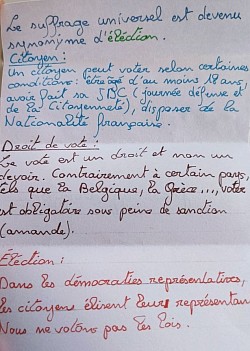 Le suffrage universel est devenu
synonyme d'élection.
Citoyen :
Un citoyen peut voter selon certaines
conditions : être âgé d'au moins 18 ans,
avoir fait sa JDC (journée défense et
de la Citoyenneté), disposer de la
Nationalité française.
Droit de vote :
Le vote est un droit et non un
devoir. Contrairement à certain pays,
tels que la Belgique, la Grèce..., voter
est obligatoire sous peine de sanction
(amande).
Élection :
Dans les démocraties représentatives,
les citoyens élisent leurs représentan
Nous ne votons pas les lois.